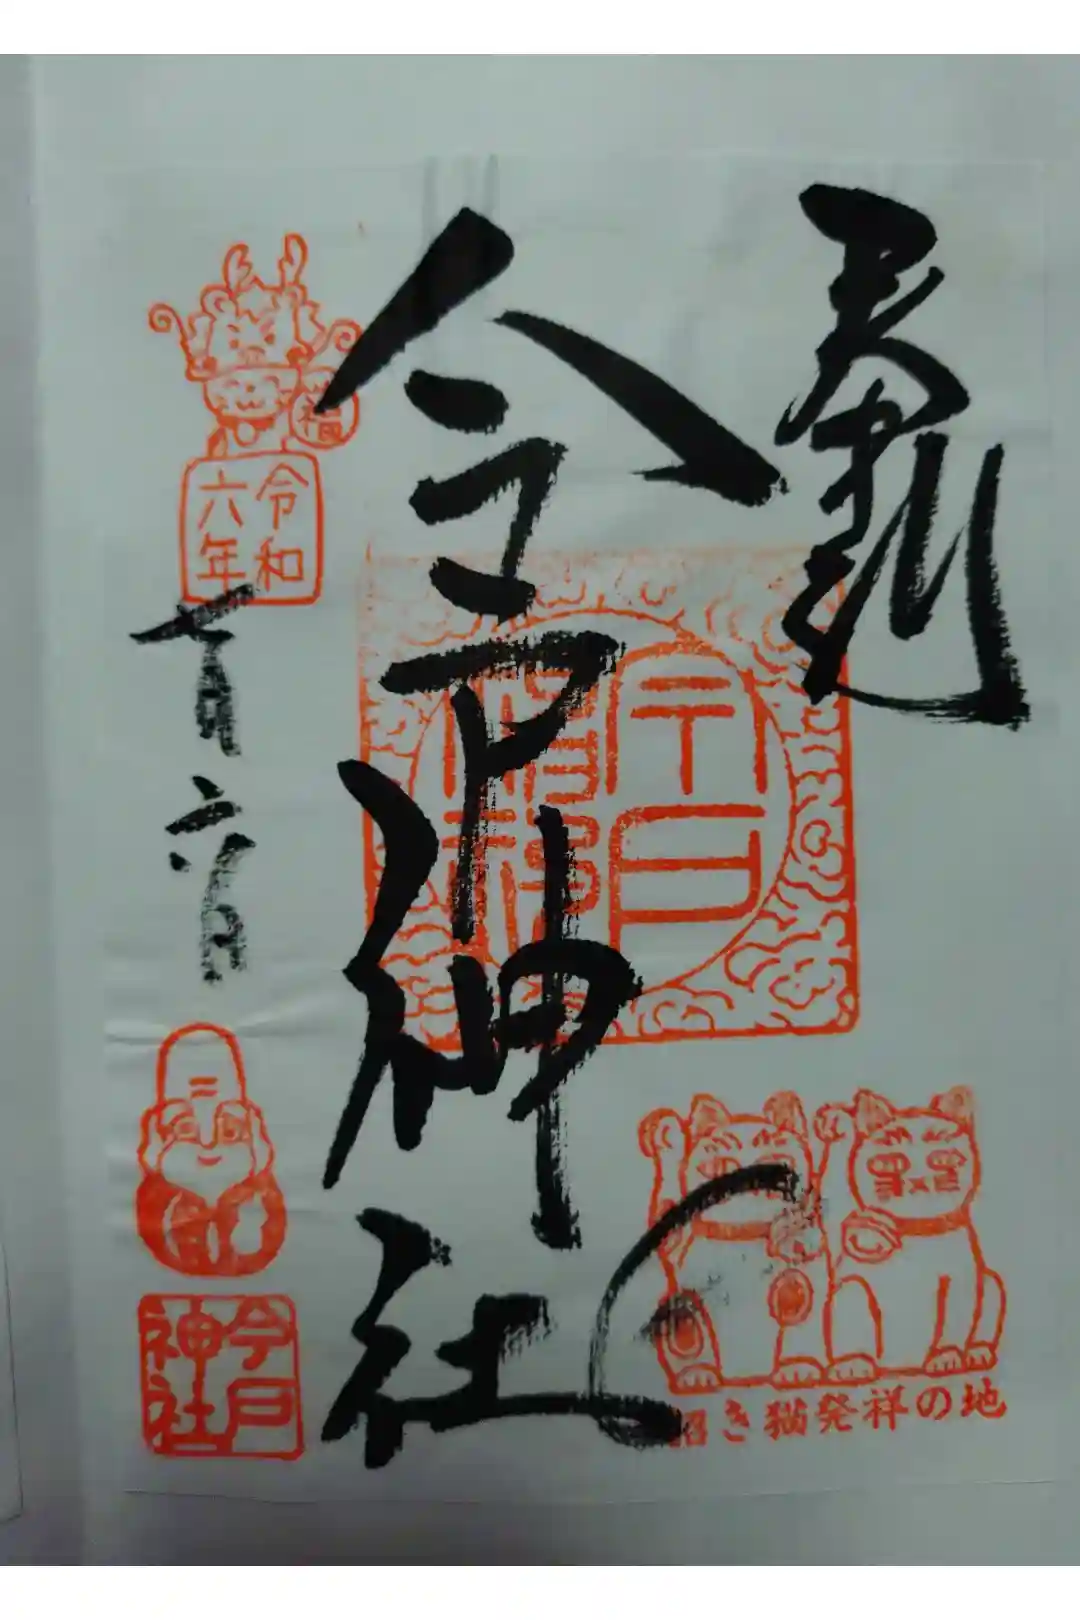 奉拝
今戸神社
今戸
福
令和
六年
十月
六日
今戸
神社
招き猫発祥の地